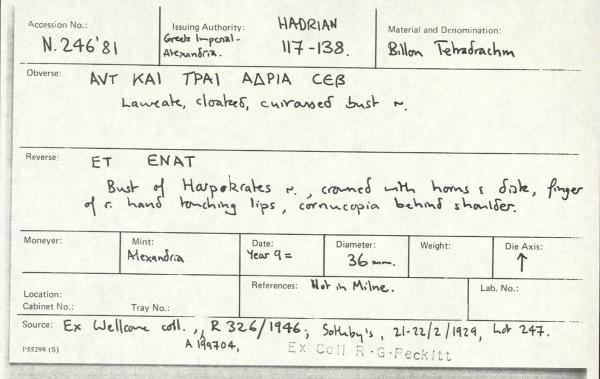 Accession No.: N.246'81
Issuing Authority: HADRIAN
Greek Imperial - 117-138.
Alexandria.
Material and Denomination:
Billon Tetradrachm
Obverse: ΑΥΤ ΚΑΙ ΤΡΑΙ ΑΔΡΙΑ CЄΒ
Laureate, cloaked, cuirassed bust r.
Reverse: ET ENAT
Bust of Harpokrates r., crowned with horns & disk, finger
of r. hand touching lips, cornucopia behind shoulder.
Moneyer:
Mint: Alexandria
Date: Year 9 =
Diameter: 36 mm.
Weight:
Die Axis: ↑
Location:
Cabinet No.: Tray No.:
References: Not in Milne.
Lab. No.:
Source: Ex Wellcome coll., R 326/1946; Sotheby's, 21-22/2/1929, Lot 247.
A 199704,
Ex Coll R.G.Peckitt
P55298 (S)